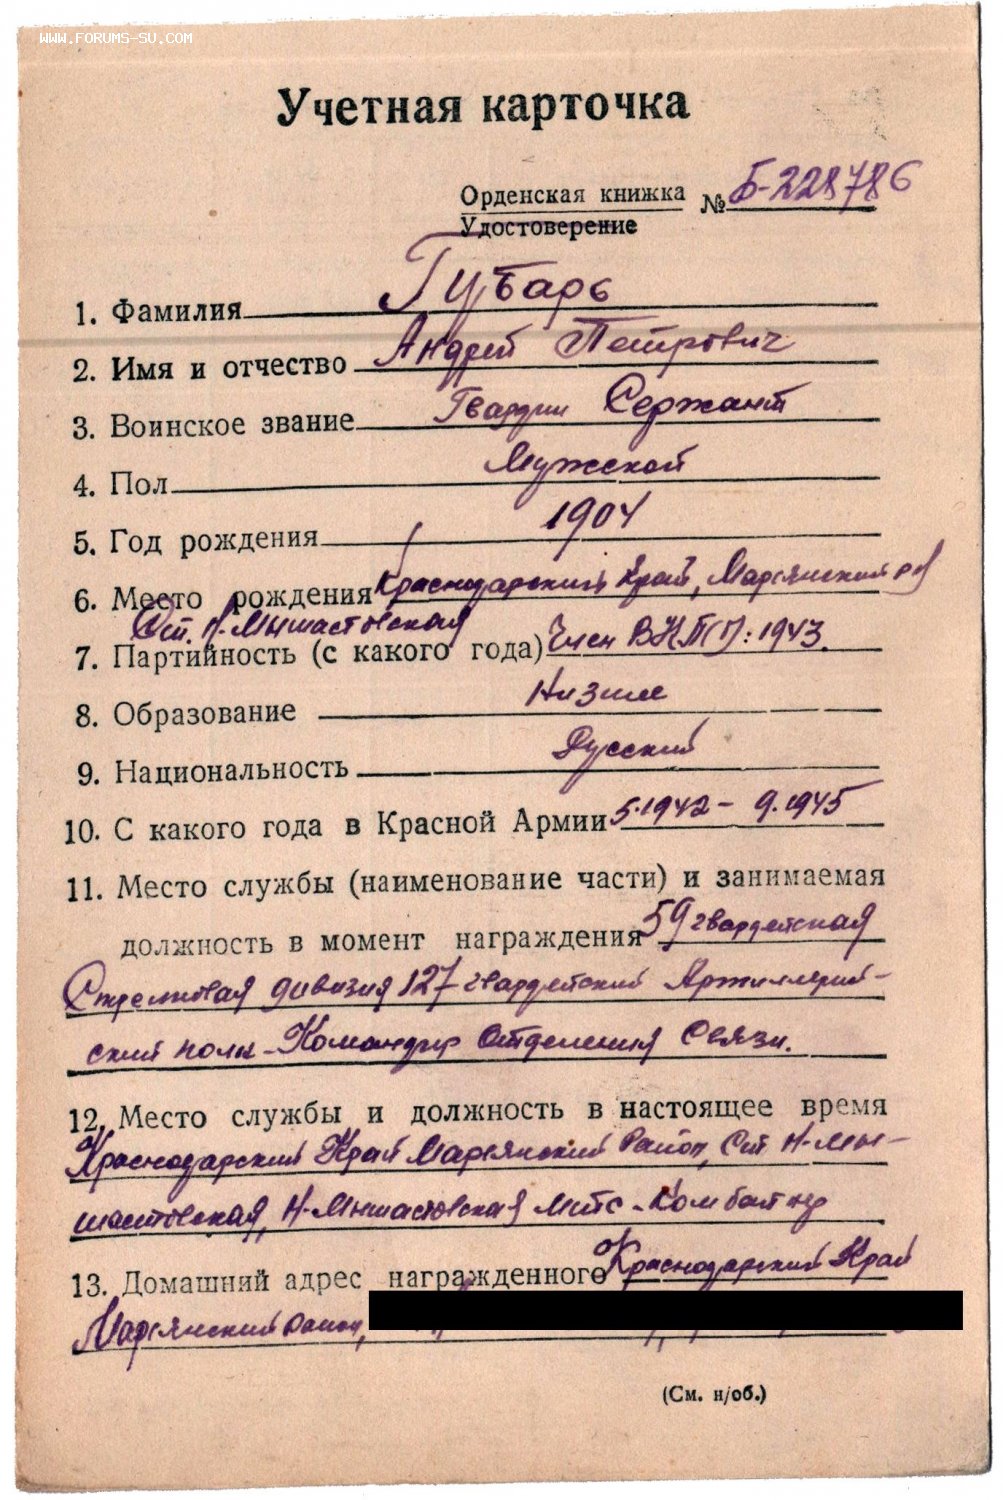 WWW.FORUMS-SU.COM
Учетная карточка
Орденская книжка № Б-228786
Удостоверение
1. Фамилия Губарь
2. Имя и отчество Андрей Петрович
3. Воинское звание Гвардии Сержант
4. Пол Мужской
5. Год рождения 1904
6. Место рождения Краснодарский Край, Марьянский р-н
Ст. Н-Мышастовская
7. Партийность (с какого года) Член ВКП(б): 1943.
8. Образование Низшее
9. Национальность Русский
10. С какого года в Красной Армии 5.1942 – 9.1945
11. Место службы (наименование части) и занимаемая
должность в момент награждения 59 гвардейская
Стрелковая дивизия 127 гвардейский Артиллерий-
ский полк - Командир Отделения Связи.
12. Место службы и должность в настоящее время
Краснодарский Край Марьянский Район, Ст Н-Мы-
шастовская, Н-Мышастовская МТС - Комбайнер
13. Домашний адрес награжденного Краснодарский Край
Марьянский район,
(См. н/об.)